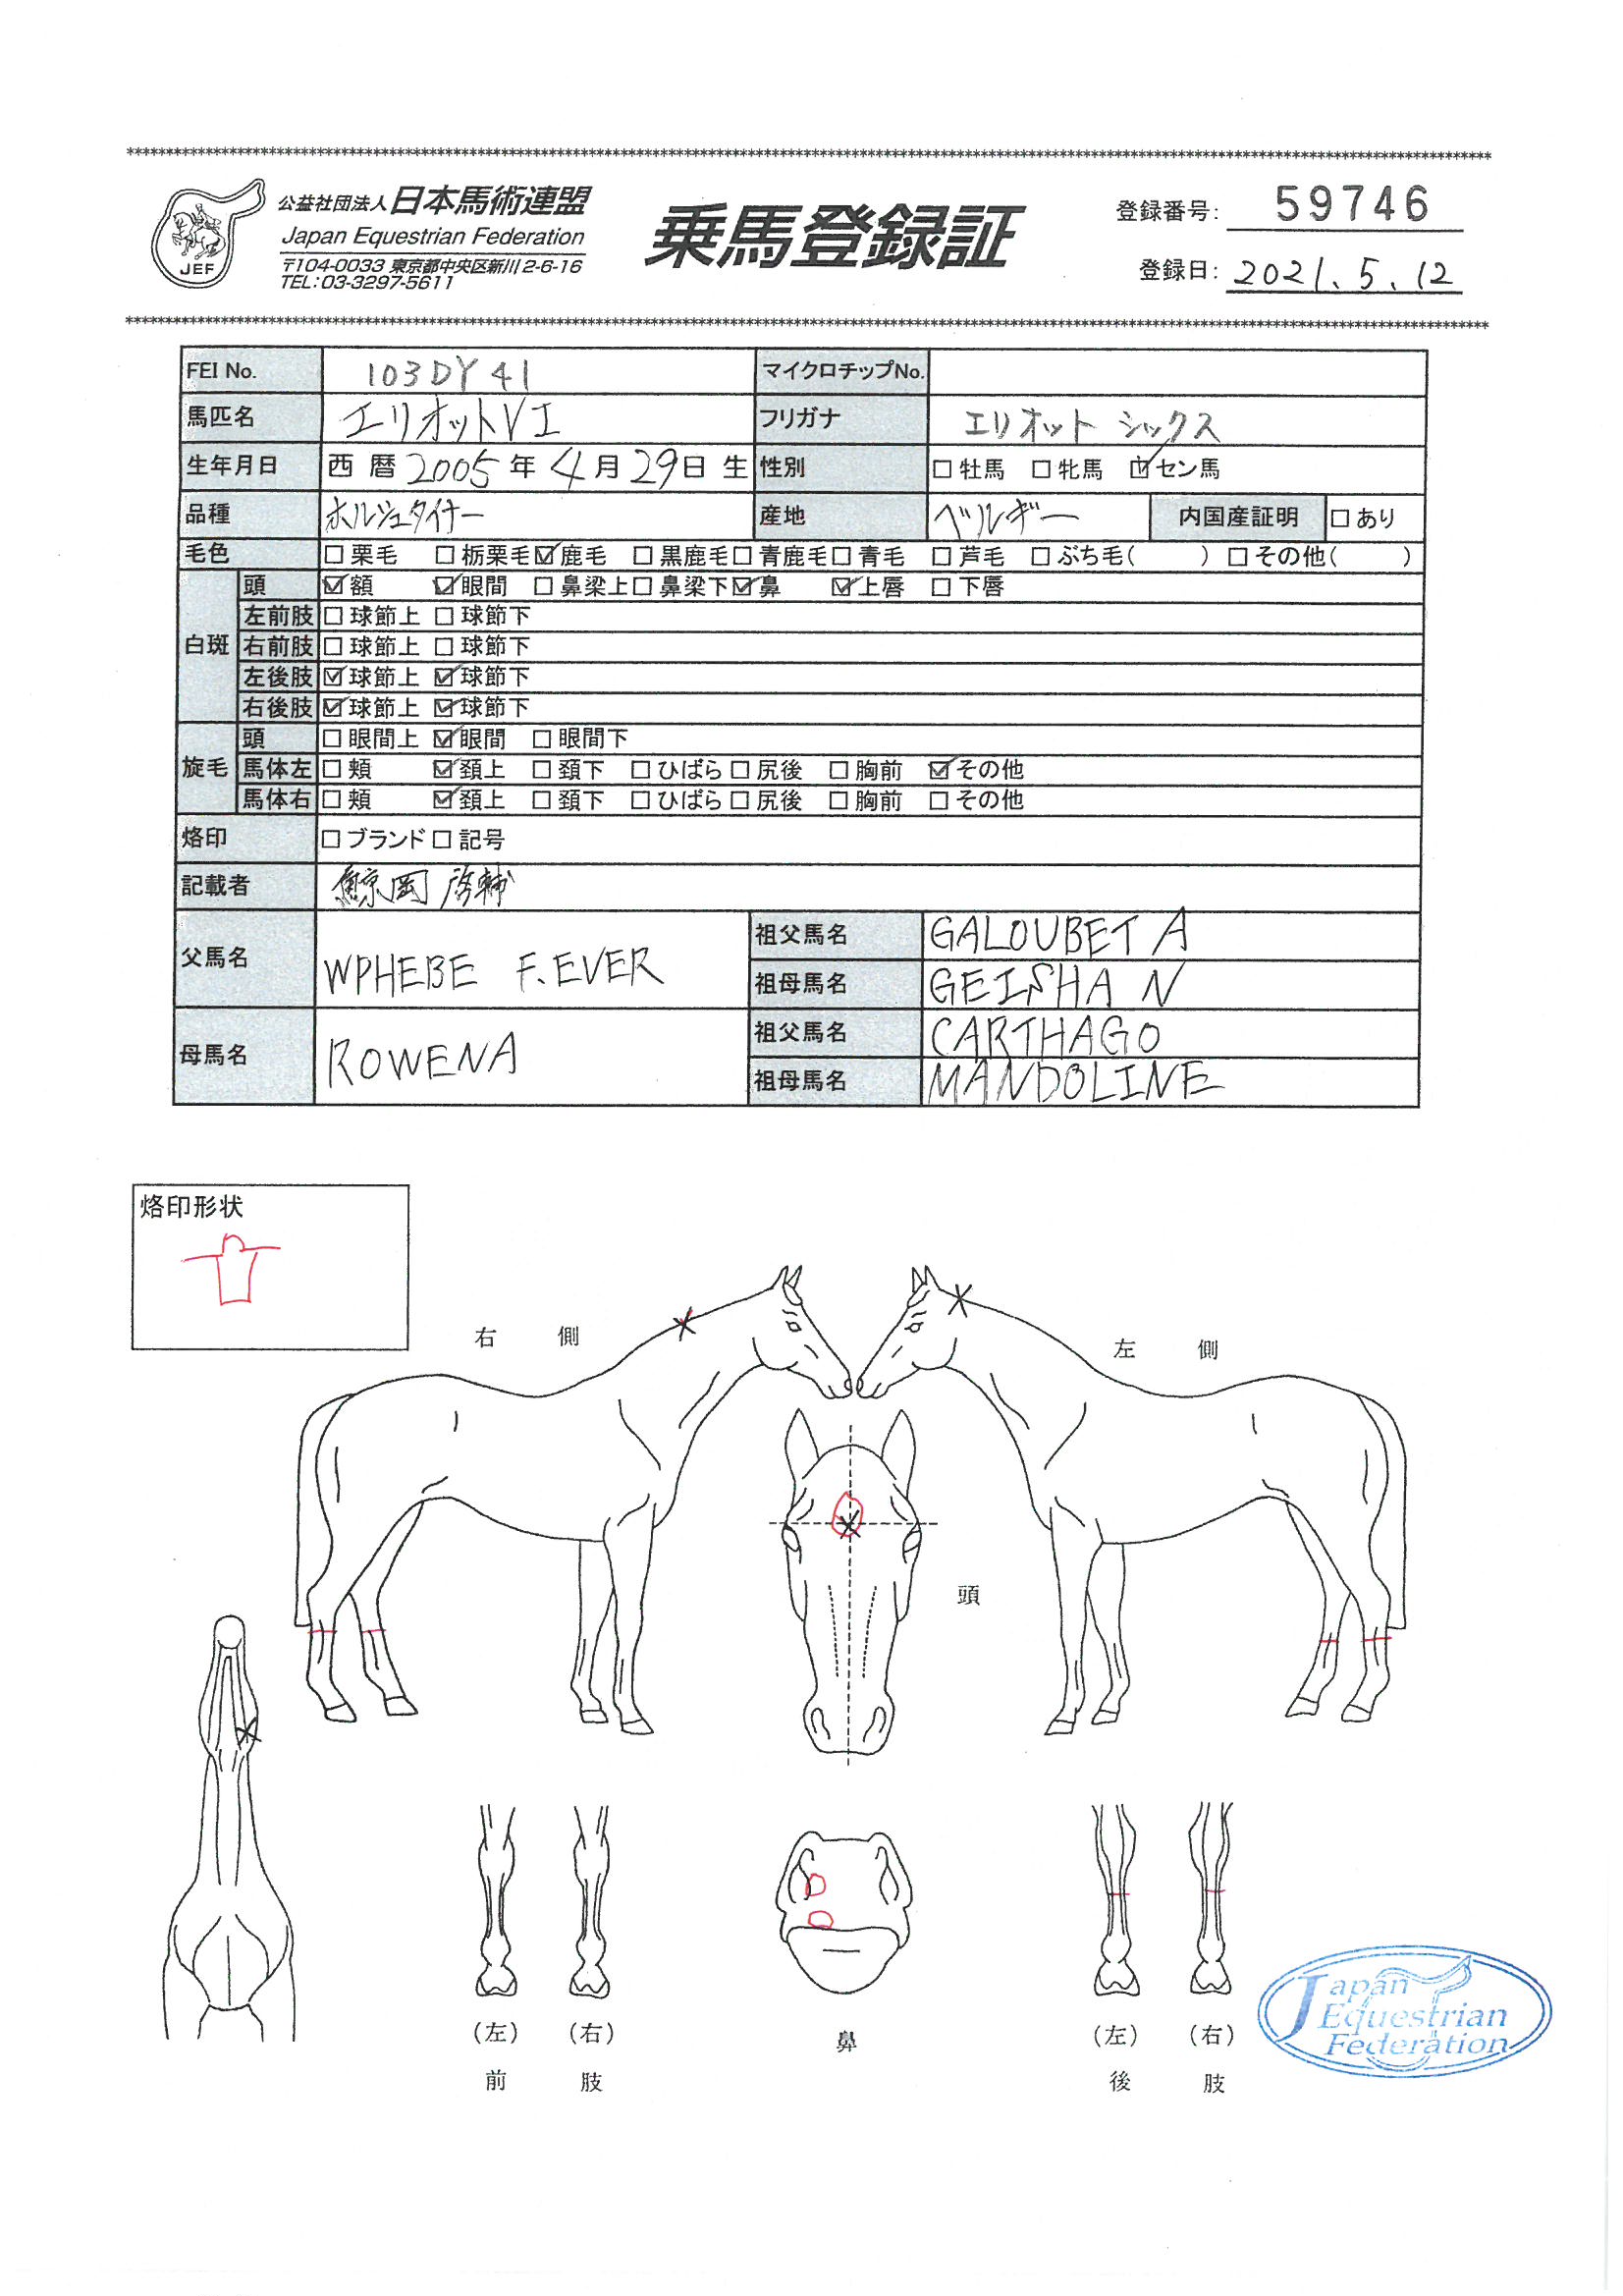 公益社団法人日本馬術連盟
Japan Equestrian Federation
〒104-0033 東京都中央区新川2-6-16
TEL:03-3297-5611
JEF
乗馬登録証
登録番号: 59746
登録日: 2021.5.12
FEI No. 103DY41 マイクロチップNo.
馬匹名 エリオットVI フリガナ エリオット シックス
生年月日 西暦2005年4月29日生 性別 □牡馬 □牝馬 ☑セン馬
品種 ホルシュタイナー 産地 ベルギー 内国産証明 □あり
毛色 □栗毛 □栃栗毛 ☑鹿毛 □黒鹿毛 □青鹿毛 □青毛 □芦毛 □ぶち毛( ) □その他( )
白斑 頭 ☑額 ☑眼間 □鼻梁上 □鼻梁下 ☑鼻 ☑上唇 □下唇
左前肢 □球節上 □球節下
右前肢 □球節上 □球節下
左後肢 ☑球節上 ☑球節下
右後肢 ☑球節上 ☑球節下
旋毛 頭 □眼間上 ☑眼間 □眼間下
馬体左 □頬 ☑頚上 □頚下 □ひばら □尻後 □胸前 ☑その他
馬体右 □頬 ☑頚上 □頚下 □ひばら □尻後 □胸前 □その他
烙印 □ブランド □記号
記載者 鯨岡
父馬名 WPHEBE F.EVER 祖父馬名 GALOUBET A
祖母馬名 GEISHA N
母馬名 ROWENA 祖父馬名 CARTHAGO
祖母馬名 MANDOLINE
烙印形状
右 側
左 側
頭
(左) (右)
前 肢
鼻
(左) (右)
後 肢
Japan
Equestrian
Federation